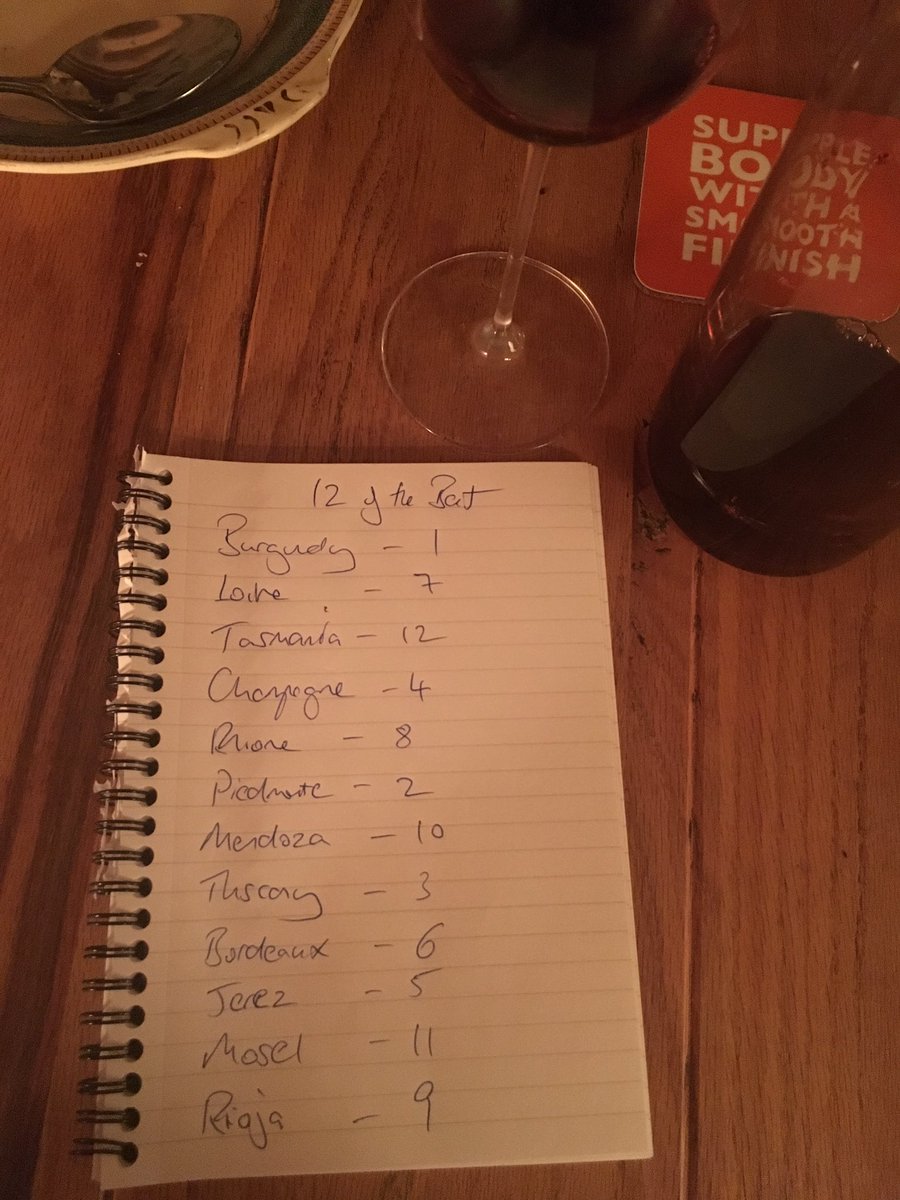 SUPPLE
BODY
WITH A
SMOOTH
FINISH
12 of the Best
Burgundy - 1
Loire - 7
Tasmania - 12
Champagne - 4
Rhone - 8
Piedmonte - 2
Mendoza - 10
Tuscany - 3
Bordeaux - 6
Jerez - 5
Mosel - 11
Rioja - 9